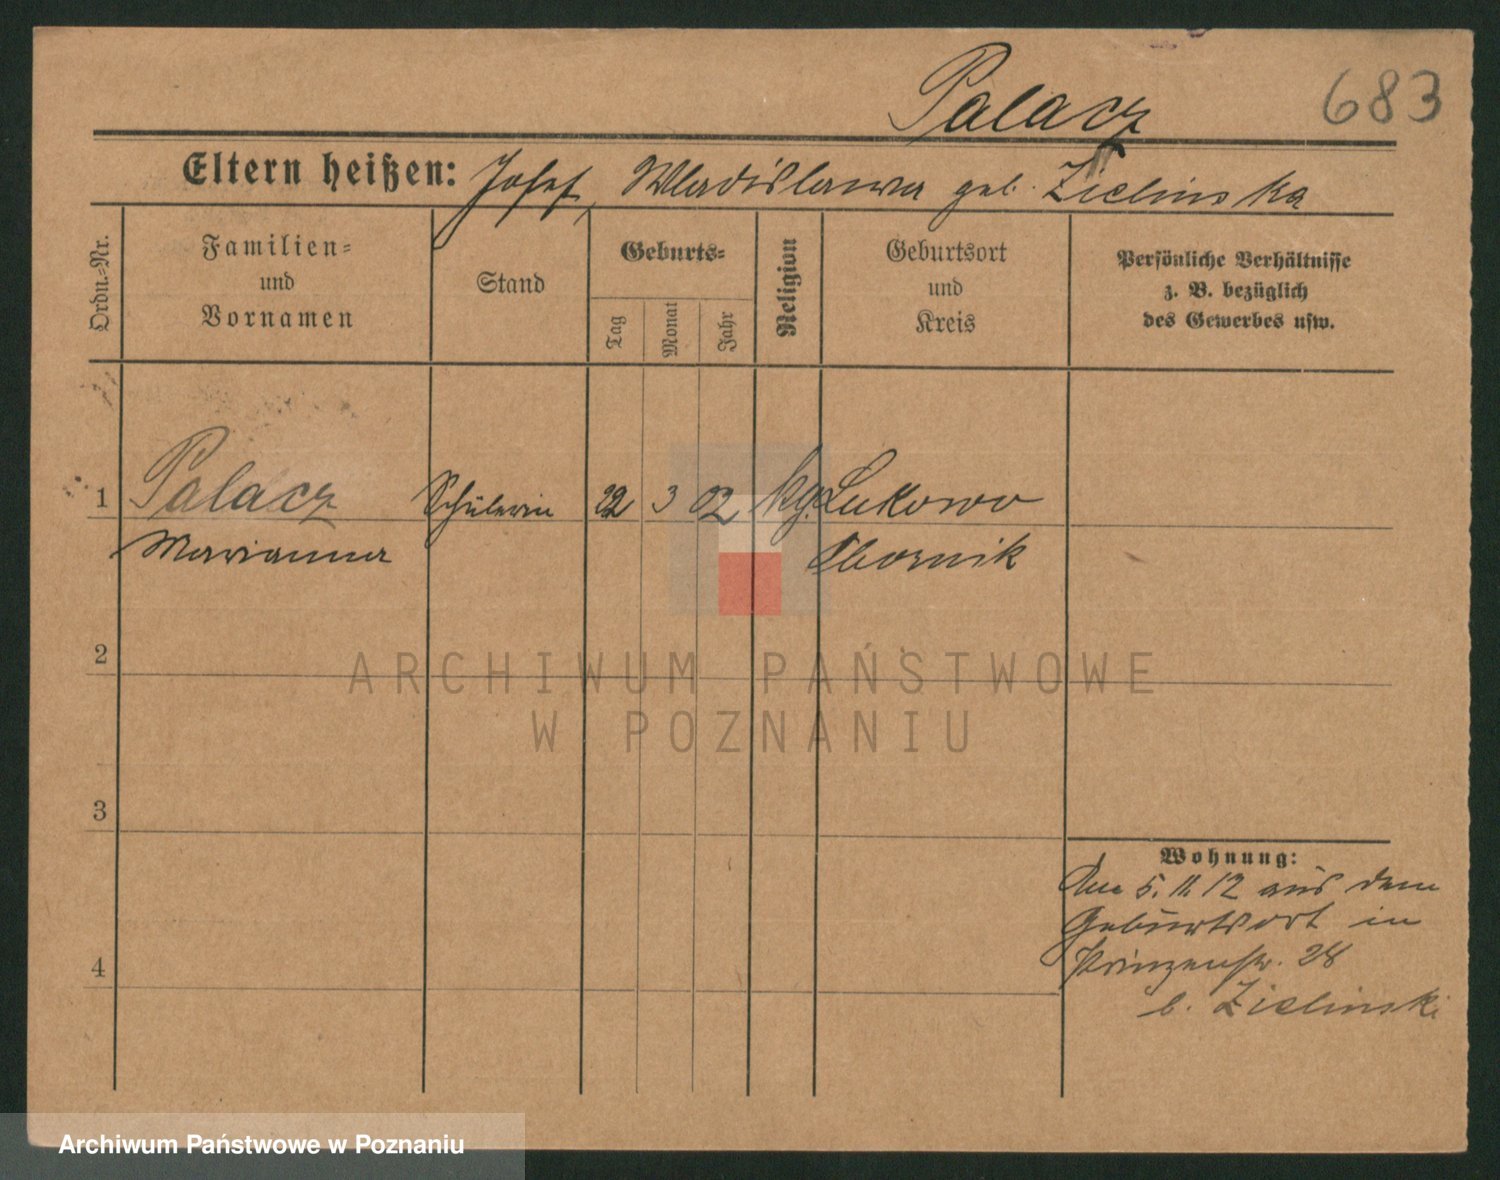 Palacz
683
Eltern heißen: Josef, Wladislawa geb. Zielinska
Ordn.-Nr.
Familien-
und
Vornamen
Stand
Geburts-
Tag
Monat
Jahr
Religion
Geburtsort
und
Kreis
Persönliche Verhältnisse
z. B. bezüglich
des Gewerbes usw.
1 Palacz Schülerin 22 3 02 kg. Lukowo
Marianna Obornik
2
ARCHIWUM PAŃSTWOWE
W POZNANIU
3
Wohnung:
5. 11. 12 aus dem
Geburtsort in
Prinzenstr. 28
b. Zielinski
4
Archiwum Państwowe w Poznaniu